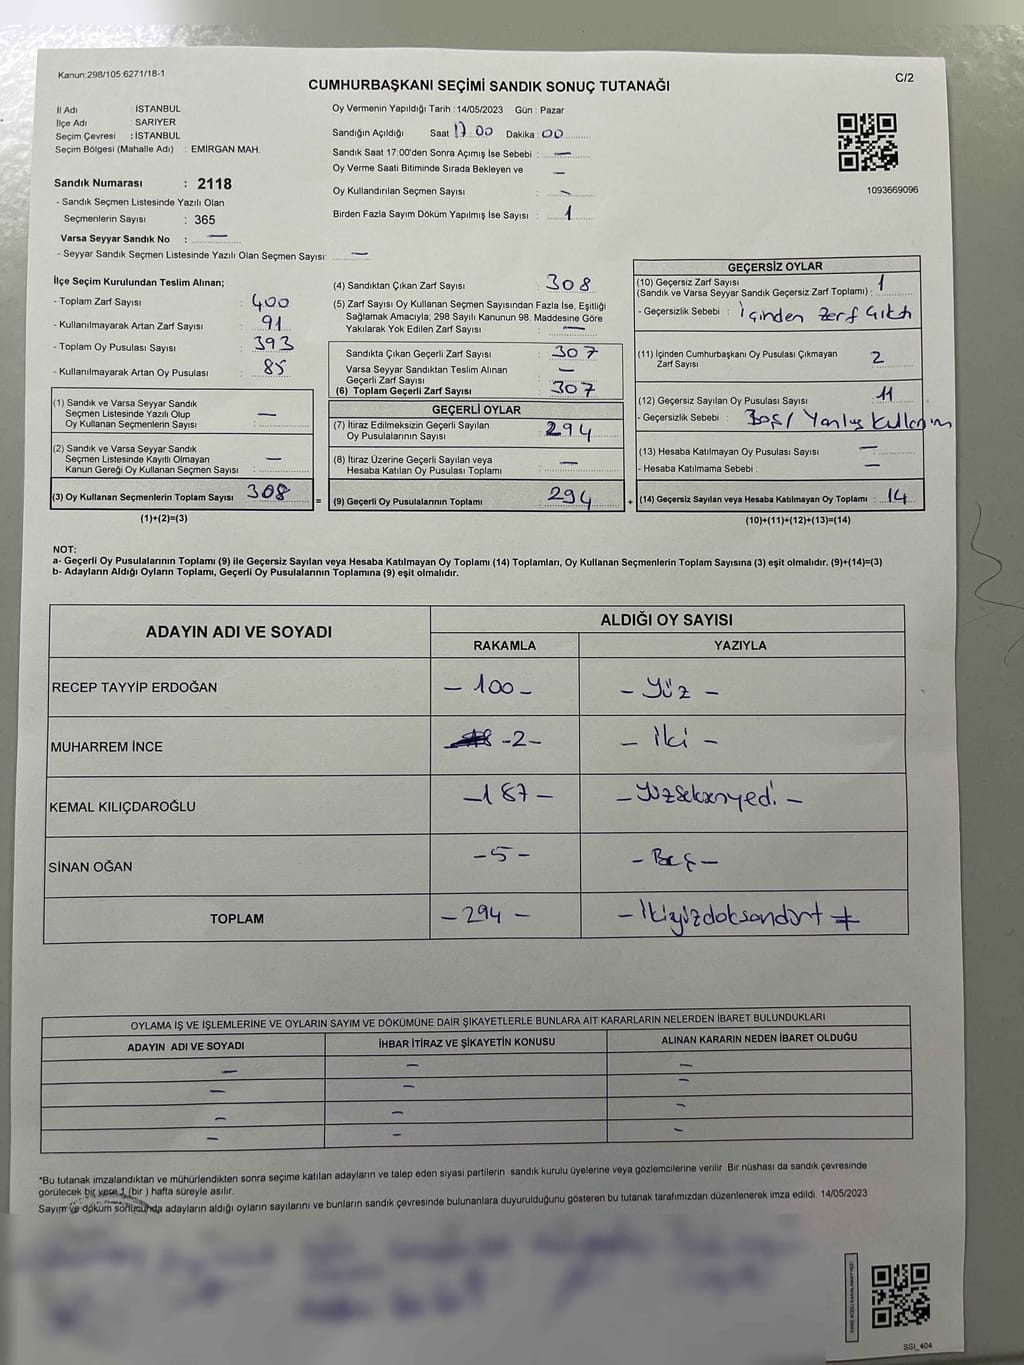 Kanun:298/105:6271/18-1
C/2
CUMHURBAŞKANI SEÇİMİ SANDIK SONUÇ TUTANAĞI
İl Adı : İSTANBUL
İlçe Adı : SARIYER
Seçim Çevresi : İSTANBUL
Seçim Bölgesi (Mahalle Adı) : EMİRGAN MAH.
Sandık Numarası : 2118
- Sandık Seçmen Listesinde Yazılı Olan
Seçmenlerin Sayısı : 365
Varsa Seyyar Sandık No : —
- Seyyar Sandık Seçmen Listesinde Yazılı Olan Seçmen Sayısı: —
Oy Vermenin Yapıldığı Tarih : 14/05/2023 Gün : Pazar
Sandığın Açıldığı Saat 17.00 Dakika 00
Sandık Saat 17:00'den Sonra Açımış İse Sebebi : —
Oy Verme Saati Bitiminde Sırada Bekleyen ve —
Oy Kullandırılan Seçmen Sayısı : —
Birden Fazla Sayım Döküm Yapılmış İse Sayısı : 1
1093669096
İlçe Seçim Kurulundan Teslim Alınan;
- Toplam Zarf Sayısı : 400
- Kullanılmayarak Artan Zarf Sayısı : 91
- Toplam Oy Pusulası Sayısı : 393
- Kullanılmayarak Artan Oy Pusulası : 85
(1) Sandık ve Varsa Seyyar Sandık
Seçmen Listesinde Yazılı Olup
Oy Kullanan Seçmenlerin Sayısı : —
(2) Sandık ve Varsa Seyyar Sandık
Seçmen Listesinde Kayıtlı Olmayan
Kanun Gereği Oy Kullanan Seçmen Sayısı : —
(3) Oy Kullanan Seçmenlerin Toplam Sayısı 308
(1)+(2)=(3)
=
(4) Sandıktan Çıkan Zarf Sayısı : 308
(5) Zarf Sayısı Oy Kullanan Seçmen Sayısından Fazla İse, Eşitliği
Sağlamak Amacıyla; 298 Sayılı Kanunun 98. Maddesine Göre
Yakılarak Yok Edilen Zarf Sayısı : —
Sandıkta Çıkan Geçerli Zarf Sayısı : 307
Varsa Seyyar Sandıktan Teslim Alınan
Geçerli Zarf Sayısı : —
(6) Toplam Geçerli Zarf Sayısı : 307
GEÇERLİ OYLAR
(7) İtiraz Edilmeksizin Geçerli Sayılan
Oy Pusulalarının Sayısı : 294
(8) İtiraz Üzerine Geçerli Sayılan veya
Hesaba Katılan Oy Pusulası Toplamı : —
(9) Geçerli Oy Pusulalarının Toplamı : 294
+
GEÇERSİZ OYLAR
(10) Geçersiz Zarf Sayısı 1
(Sandık ve Varsa Seyyar Sandık Geçersiz Zarf Toplamı) :
- Geçersizlik Sebebi : İçinden Zarf Çıktı
(11) İçinden Cumhurbaşkanı Oy Pusulası Çıkmayan
Zarf Sayısı : 2
(12) Geçersiz Sayılan Oy Pusulası Sayısı : 11
- Geçersizlik Sebebi : Boş/ Yanlış Kullanım
(13) Hesaba Katılmayan Oy Pusulası Sayısı : —
- Hesaba Katılmama Sebebi : —
(14) Geçersiz Sayılan veya Hesaba Katılmayan Oy Toplamı : 14
(10)+(11)+(12)+(13)=(14)
NOT:
a- Geçerli Oy Pusulalarının Toplamı (9) ile Geçersiz Sayılan veya Hesaba Katılmayan Oy Toplamı (14) Toplamları, Oy Kullanan Seçmenlerin Toplam Sayısına (3) eşit olmalıdır. (9)+(14)=(3)
b- Adayların Aldığı Oyların Toplamı, Geçerli Oy Pusulalarının Toplamına (9) eşit olmalıdır.
ADAYIN ADI VE SOYADI
ALDIĞI OY SAYISI
RAKAMLA YAZIYLA
RECEP TAYYİP ERDOĞAN - 100 - - Yüz -
MUHARREM İNCE -2- - İki -
KEMAL KILIÇDAROĞLU -187- -Yüzseksenyedi-
SİNAN OĞAN -5- - Beş -
TOPLAM -294- - İkiyüzdoksandört
OYLAMA İŞ VE İŞLEMLERİNE VE OYLARIN SAYIM VE DÖKÜMÜNE DAİR ŞİKAYETLERLE BUNLARA AİT KARARLARIN NELERDEN İBARET BULUNDUKLARI
ADAYIN ADI VE SOYADI İHBAR İTİRAZ VE ŞİKAYETİN KONUSU ALINAN KARARIN NEDEN İBARET OLDUĞU
— — —
— — —
— — —
— — —
*Bu tutanak imzalandıktan ve mühürlendikten sonra seçime katılan adayların ve talep eden siyasi partilerin sandık kurulu üyelerine veya gözlemcilerine verilir. Bir nüshası da sandık çevresinde
görülecek bir yere 1 (bir ) hafta süreyle asılır.
Sayım ve döküm sonucunda adayların aldığı oyların sayılarını ve bunların sandık çevresinde bulunanlara duyurulduğunu gösteren bu tutanak tarafımızdan düzenlenerek imza edildi. 14/05/2023
SSI_404